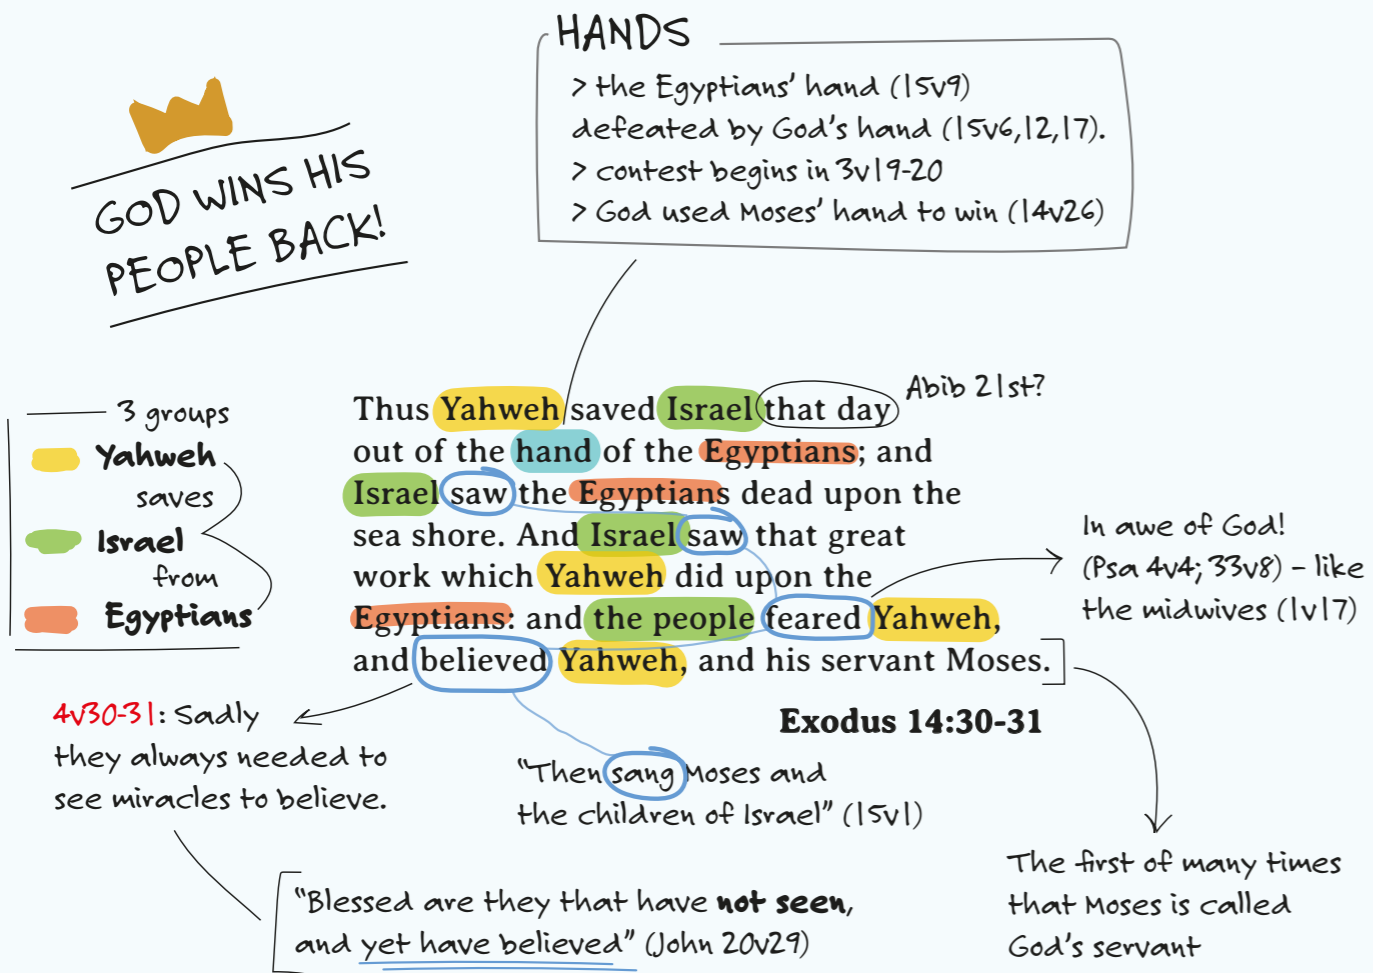 HANDS
> the Egyptians' hand (15v9)
defeated by God's hand (15v6,12,17).
> contest begins in 3v19-20
> God used Moses' hand to win (14v26)
GOD WINS HIS
PEOPLE BACK!
3 groups
Yahweh
saves
Israel
from
Egyptians
Thus Yahweh saved Israel that day
out of the hand of the Egyptians; and
Israel saw the Egyptians dead upon the
sea shore. And Israel saw that great
work which Yahweh did upon the
Egyptians: and the people feared Yahweh,
and believed Yahweh, and his servant Moses.
Exodus 14:30-31
Abib 21st?
In awe of God!
(Psa 4v4; 33v8) – like
the midwives (1v17)
4v30-31: Sadly
they always needed to
see miracles to believe.
"Then sang Moses and
the children of Israel" (15v1)
"Blessed are they that have not seen,
and yet have believed" (John 20v29)
The first of many times
that Moses is called
God's servant